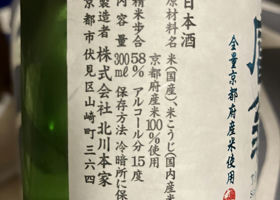 日本酒
原材料名 米(国産)、米こうじ(国内産米
京都府産米100%使用
精米歩合 58% アルコール分 15度
内容量 300ml 保存方法 冷暗所に保
製造者 株式会社 北川本家
京都市伏見区山崎町三六四
全量京都府産米使用